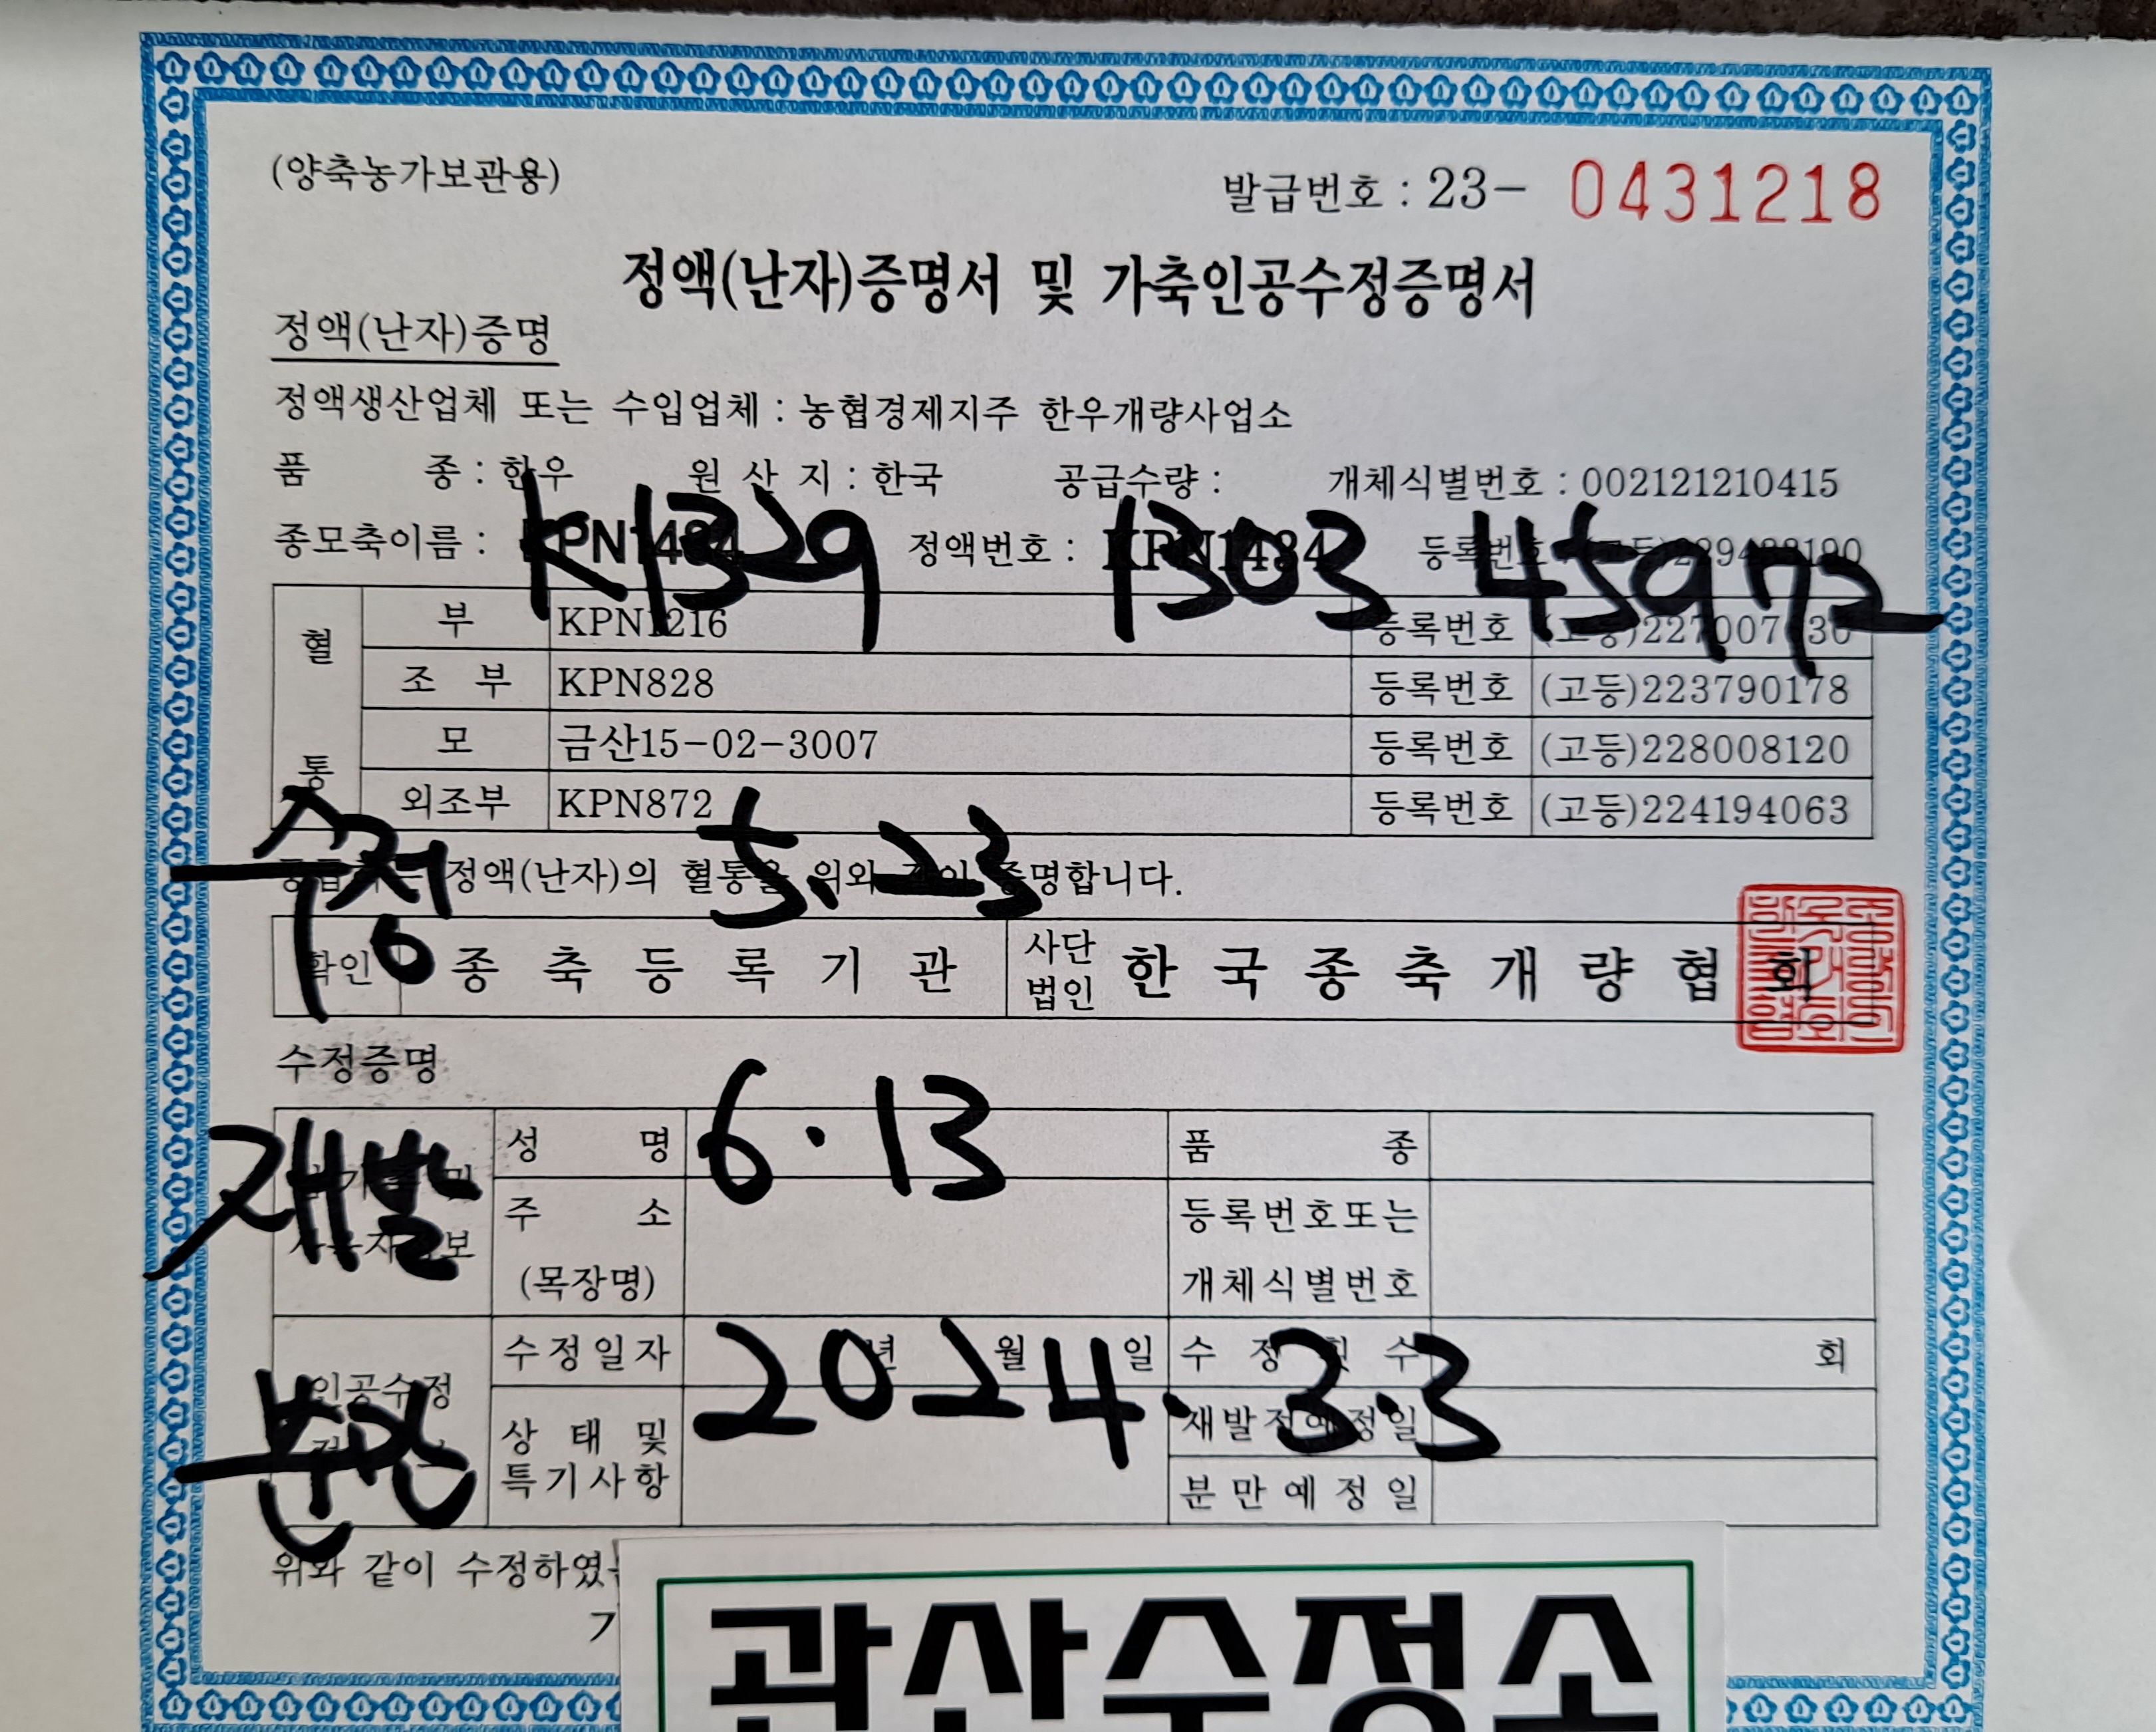 (양축농가보관용)
발급번호 : 23- 0431218
정액(난자)증명서 및 가축인공수정증명서
정액(난자)증명
정액생산업체 또는 수입업체 : 농협경제지주 한우개량사업소
품 종 : 한우 원 산 지 : 한국 공급수량 : 개체식별번호 : 002121210415
K1329 1303 45972
종모축이름 : KPN1434 정액번호 : KPN1434 등록번호
혈통
부 KPN1216 등록번호 (고등)
조 부 KPN828 등록번호 (고등)223790178
모 금산15-02-3007 등록번호 (고등)228008120
외조부 KPN872 등록번호 (고등)224194063
수정 5. 23
정액(난자)의 혈통을 위와 같이 증명합니다.
확인 종 축 등 록 기 관 사단법인 한 국 종 축 개 량 협 회
수정증명
재발 6. 13
성 명 품 종
주 소 등록번호또는
(목장명) 개체식별번호
수정일자 년 월 일 수 정 횟 수 회
분만 2024. 3. 3
인공수정
상 태 및 재발정예정일
특기사항 분만예정일
위와 같이 수정하였
관산수정소